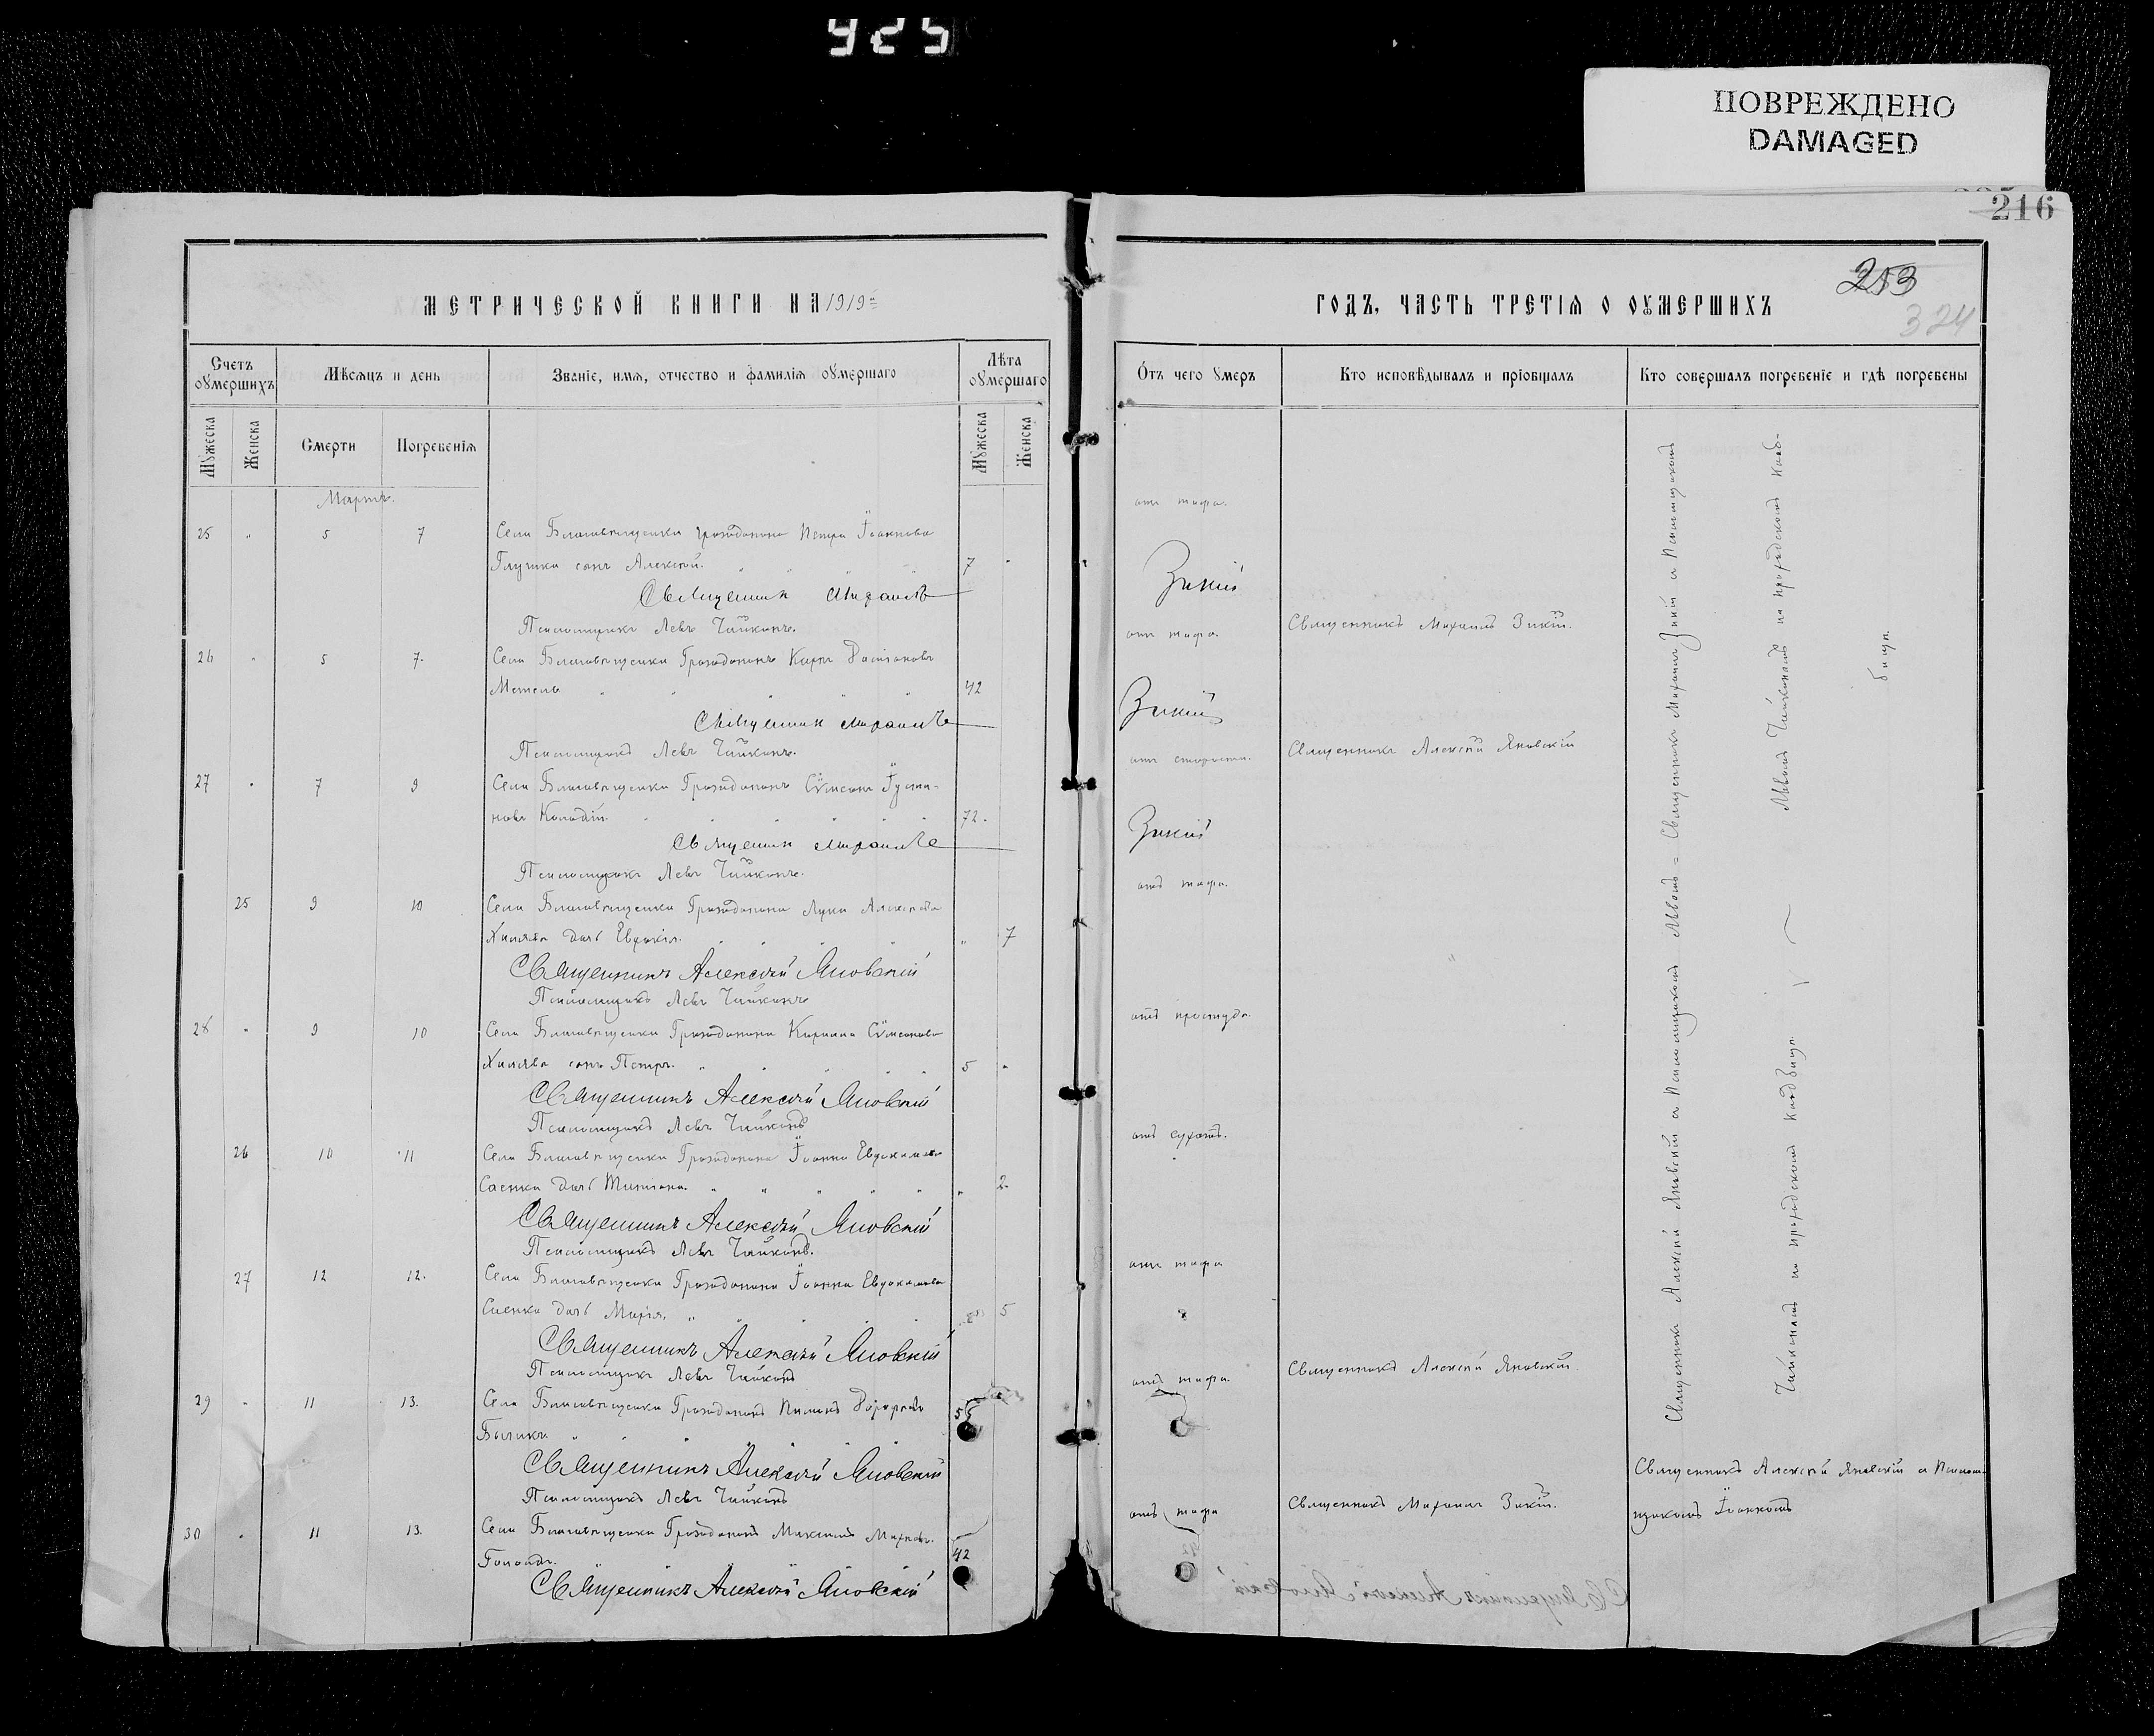 925
ПОВРЕЖДЕНО
DAMAGED
216
253
324
МЕТРИЧЕСКОЙ КНИГИ НА 1919
ГОДЪ, ЧАСТЬ ТРЕТІѦ О ОУМЕРШИХЪ
Счетъ оумершихъ
Мѣсяцъ и день
Званіе, имя, отчество и фамилія оумершаго
Лѣта оумершаго
Отъ чего умеръ
Кто исповѣдывалъ и пріобщалъ
Кто совершалъ погребеніе и гдѣ погребены
Мужеска
Женска
Смерти
Погребенія
Мужеска
Женска
Мартъ.
25 " 5 7 Села Благовѣщенки гражданина Петра Іоаннова
отъ тифа.
сынъ Алексѣй. 7 "
Священник Михаилъ Зикій
Псаломщикъ Левъ Чайкинъ.
26 " 5 7. Села Благовѣщенки Гражданинъ Карпъ
отъ тифа. Священникъ Михаилъ Зикій.
42
Священник Михаилъ Зикій
Псаломщикъ Левъ Чайкинъ.
27 " 7 9 Села Благовѣщенки Гражданинъ Сѵмеонъ Іусти-
отъ старости. Священникъ Алексѣй Яновскій
новъ 72.
Священник Михаилъ Зикій
Псаломщикъ Левъ Чайкинъ.
25 9 10 Села Благовѣщенки Гражданина Луки Алексѣева
отъ тифа.
дочь Евдокія. " 7
Священникъ Алексѣй Яновскій
Псаломщикъ Левъ Чайкинъ
28 " 9 10 Села Благовѣщенки Гражданина Кирилла Сѵмеонова
отъ простуды.
сынъ Петръ. 5 "
Священникъ Алексѣй Яновскій
Псаломщикъ Левъ Чайкинъ
26 10 11 Села Благовѣщенки Гражданина Іоанна Евдокимова
отъ сухотъ.
Саенка дочь Татіана. " 2
Священникъ Алексѣй Яновскій
Псаломщикъ Левъ Чайкинъ.
27 12 12. Села Благовѣщенки Гражданина Іоанна Евдокимова
отъ тифа
Саенка дочь Марія, " 5
Священникъ Алексѣй Яновскій
Псаломщикъ Левъ Чайкинъ
29 " 11 13. Села Благовѣщенки Гражданинъ
отъ тифа. Священникъ Алексѣй Яновскій
Священникъ Алексѣй Яновскій
Псаломщикъ Левъ Чайкинъ
30 " 11 13. Села Благовѣщенки Гражданинъ Максимъ
отъ тифа Священникъ Михаилъ Зикій.
42
Священникъ Алексѣй Яновскій
Священникъ Алексѣй Яновскій и Псаломщикомъ Львомъ = Священникъ Михаилъ Зикій и Псаломщикомъ
Чайкинымъ на приходскомъ кладбищѣ.
Львомъ Чайкинымъ на приходскомъ клад-
бищѣ.
Священникъ Алексѣй Яновскій и Псалом-
щикомъ Іоанномъ